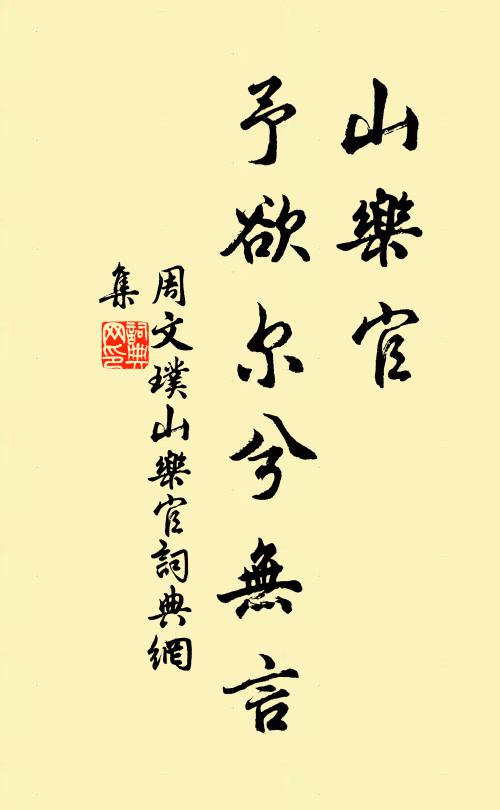 山樂官
予欲尔兮無言
周文璞山樂官詞典網
集
詞典网印